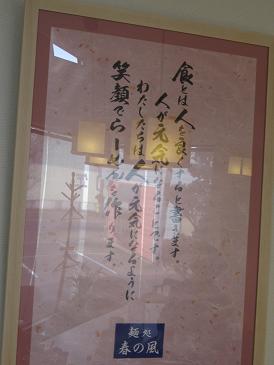 食とは人を良くすると書きます。
人が元気になることです。
わたしたちは人が元気になるように
笑顔でらーめんを作ります。
麺処
春の風